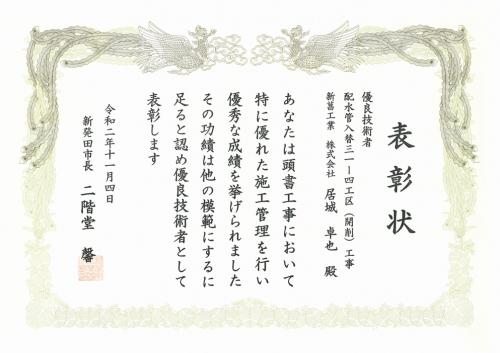 表彰状
優良技術者
配水管入替三一ー四工区（開削）工事
新菖工業 株式会社 居城 卓也 殿
あなたは頭書工事において
特に優れた施工管理を行い
優秀な成績を挙げられました
その功績は他の模範にするに
足ると認め優良技術者として
表彰します
令和二年十一月四日
新発田市長 二階堂 馨